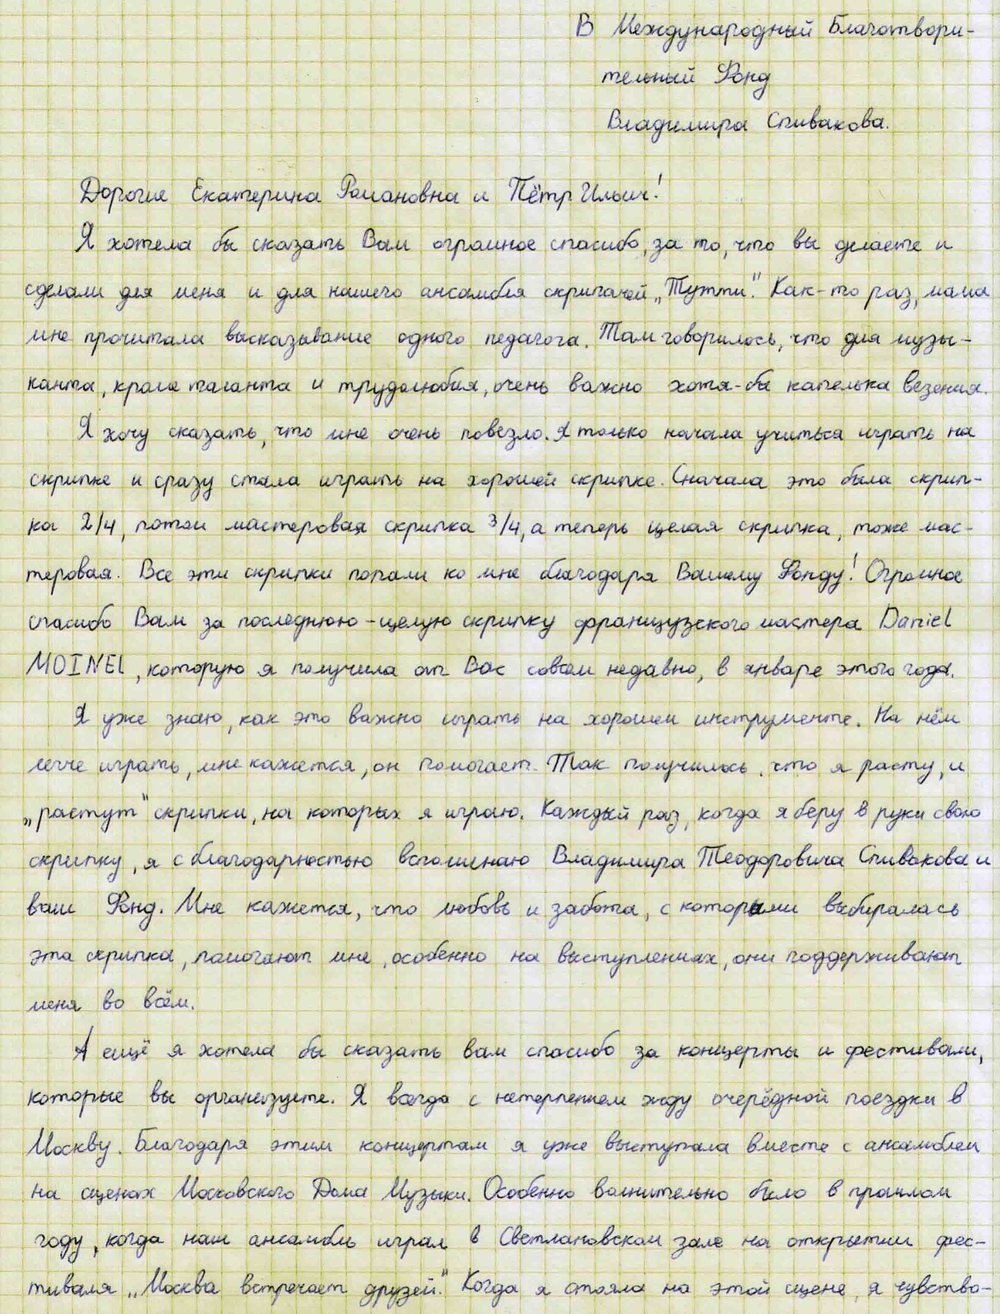 В Международный Благотвори-
тельный Фонд
Владимира Спивакова.
Дорогие Екатерина Романовна и Пётр Ильич!
Я хотела бы сказать Вам огромное спасибо, за то, что вы делаете и
сделали для меня и для нашего ансамбля скрипачей „Тутти". Как-то раз, мама
мне прочитала высказывание одного педагога. Там говорилось, что для музы-
канта, кроме таланта и трудолюбия, очень важно хотя-бы капелька везения.
Я хочу сказать, что мне очень повезло. Я только начала учиться играть на
скрипке и сразу стала играть на хорошей скрипке. Сначала это была скрип-
ка 2/4, потом мастеровая скрипка 3/4, а теперь целая скрипка, тоже мас-
теровая. Все эти скрипки попали ко мне благодаря Вашему Фонду! Огромное
спасибо Вам за последнюю-целую скрипку французского мастера Daniel
MOINEL, которую я получила от Вас совсем недавно, в январе этого года.
Я уже знаю, как это важно играть на хорошем инструменте. На нём
легче играть, мне кажется, он помогает. Так получилось, что я расту, и
„растут" скрипки, на которых я играю. Каждый раз, когда я беру в руки свою
скрипку, я с благодарностью вспоминаю Владимира Теодоровича Спивакова и
ваш Фонд. Мне кажется, что любовь и забота, с которыми выбиралась
эта скрипка, помогают мне, особенно на выступлениях, они поддерживают
меня во всём.
А ещё я хотела бы сказать вам спасибо за концерты и фестивали,
которые вы организуете. Я всегда с нетерпением жду очерёдной поездки в
Москву. Благодаря этим концертам я уже выступала вместе с ансамблем
на сценах Московского Дома Музыки. Особенно волнительно было в прошлом
году, когда наш ансамбль играл в Светлановском зале на открытии фес-
тиваля „Москва встречает друзей". Когда я стояла на этой сцене, я чувство-